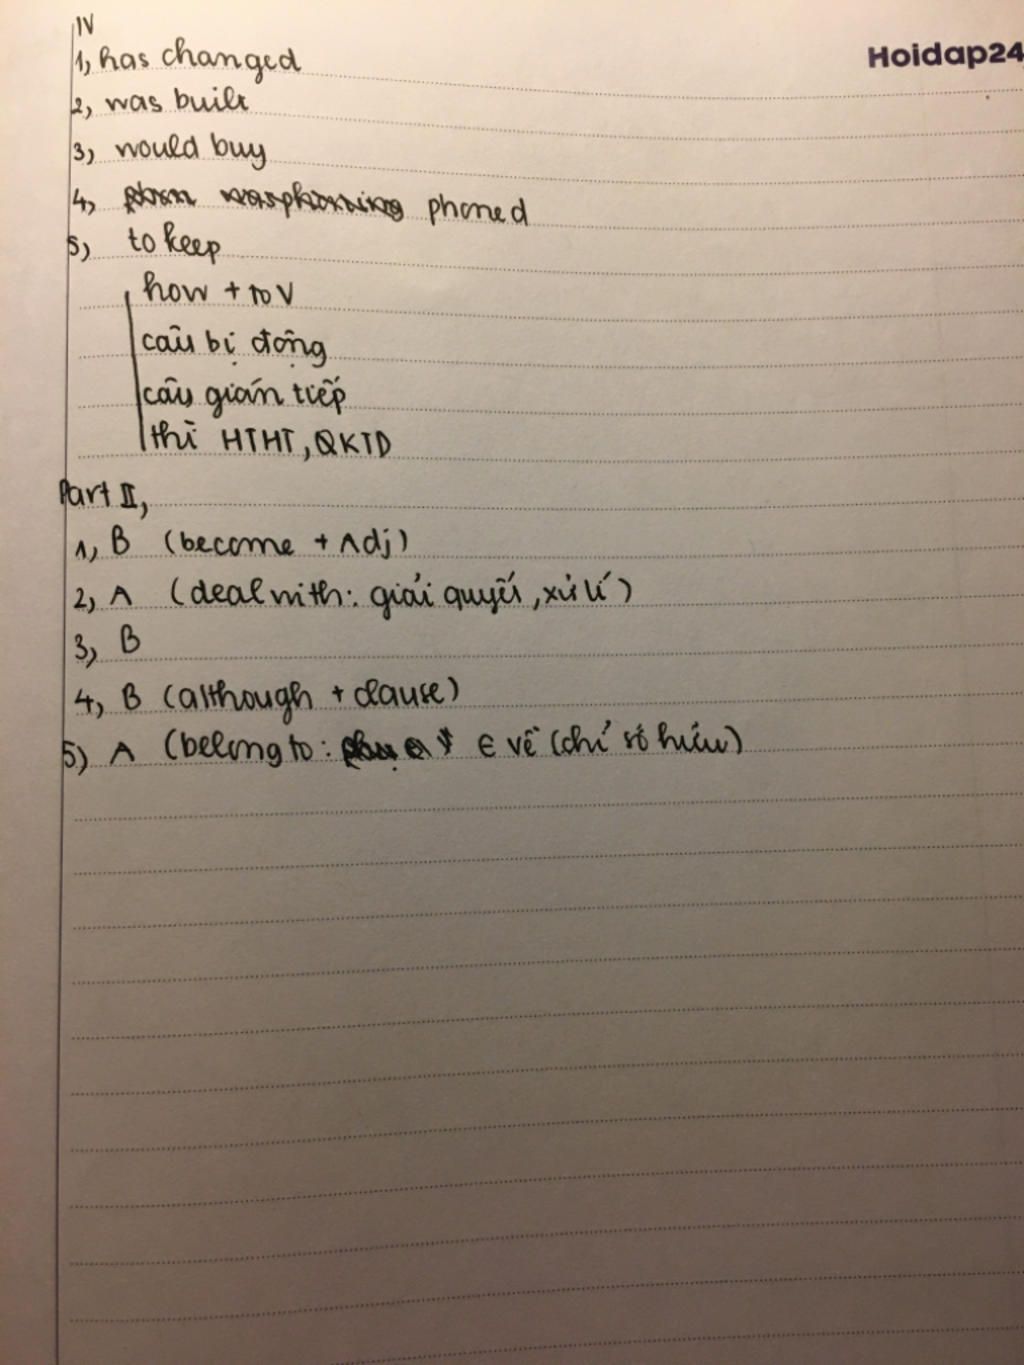 IV
Hoidap24
1, has changed
2, was built
3, would buy
4, phoned
5, to keep
how + to V
câu bị động
câu gián tiếp
thì HTHT, QKTD
Part II,
1, B (become + Adj)
2, A (deal with: giải quyết, xử lí)
3, B
4, B (although + clause)
5) A (belong to: ∈ về (chỉ sở hữu)